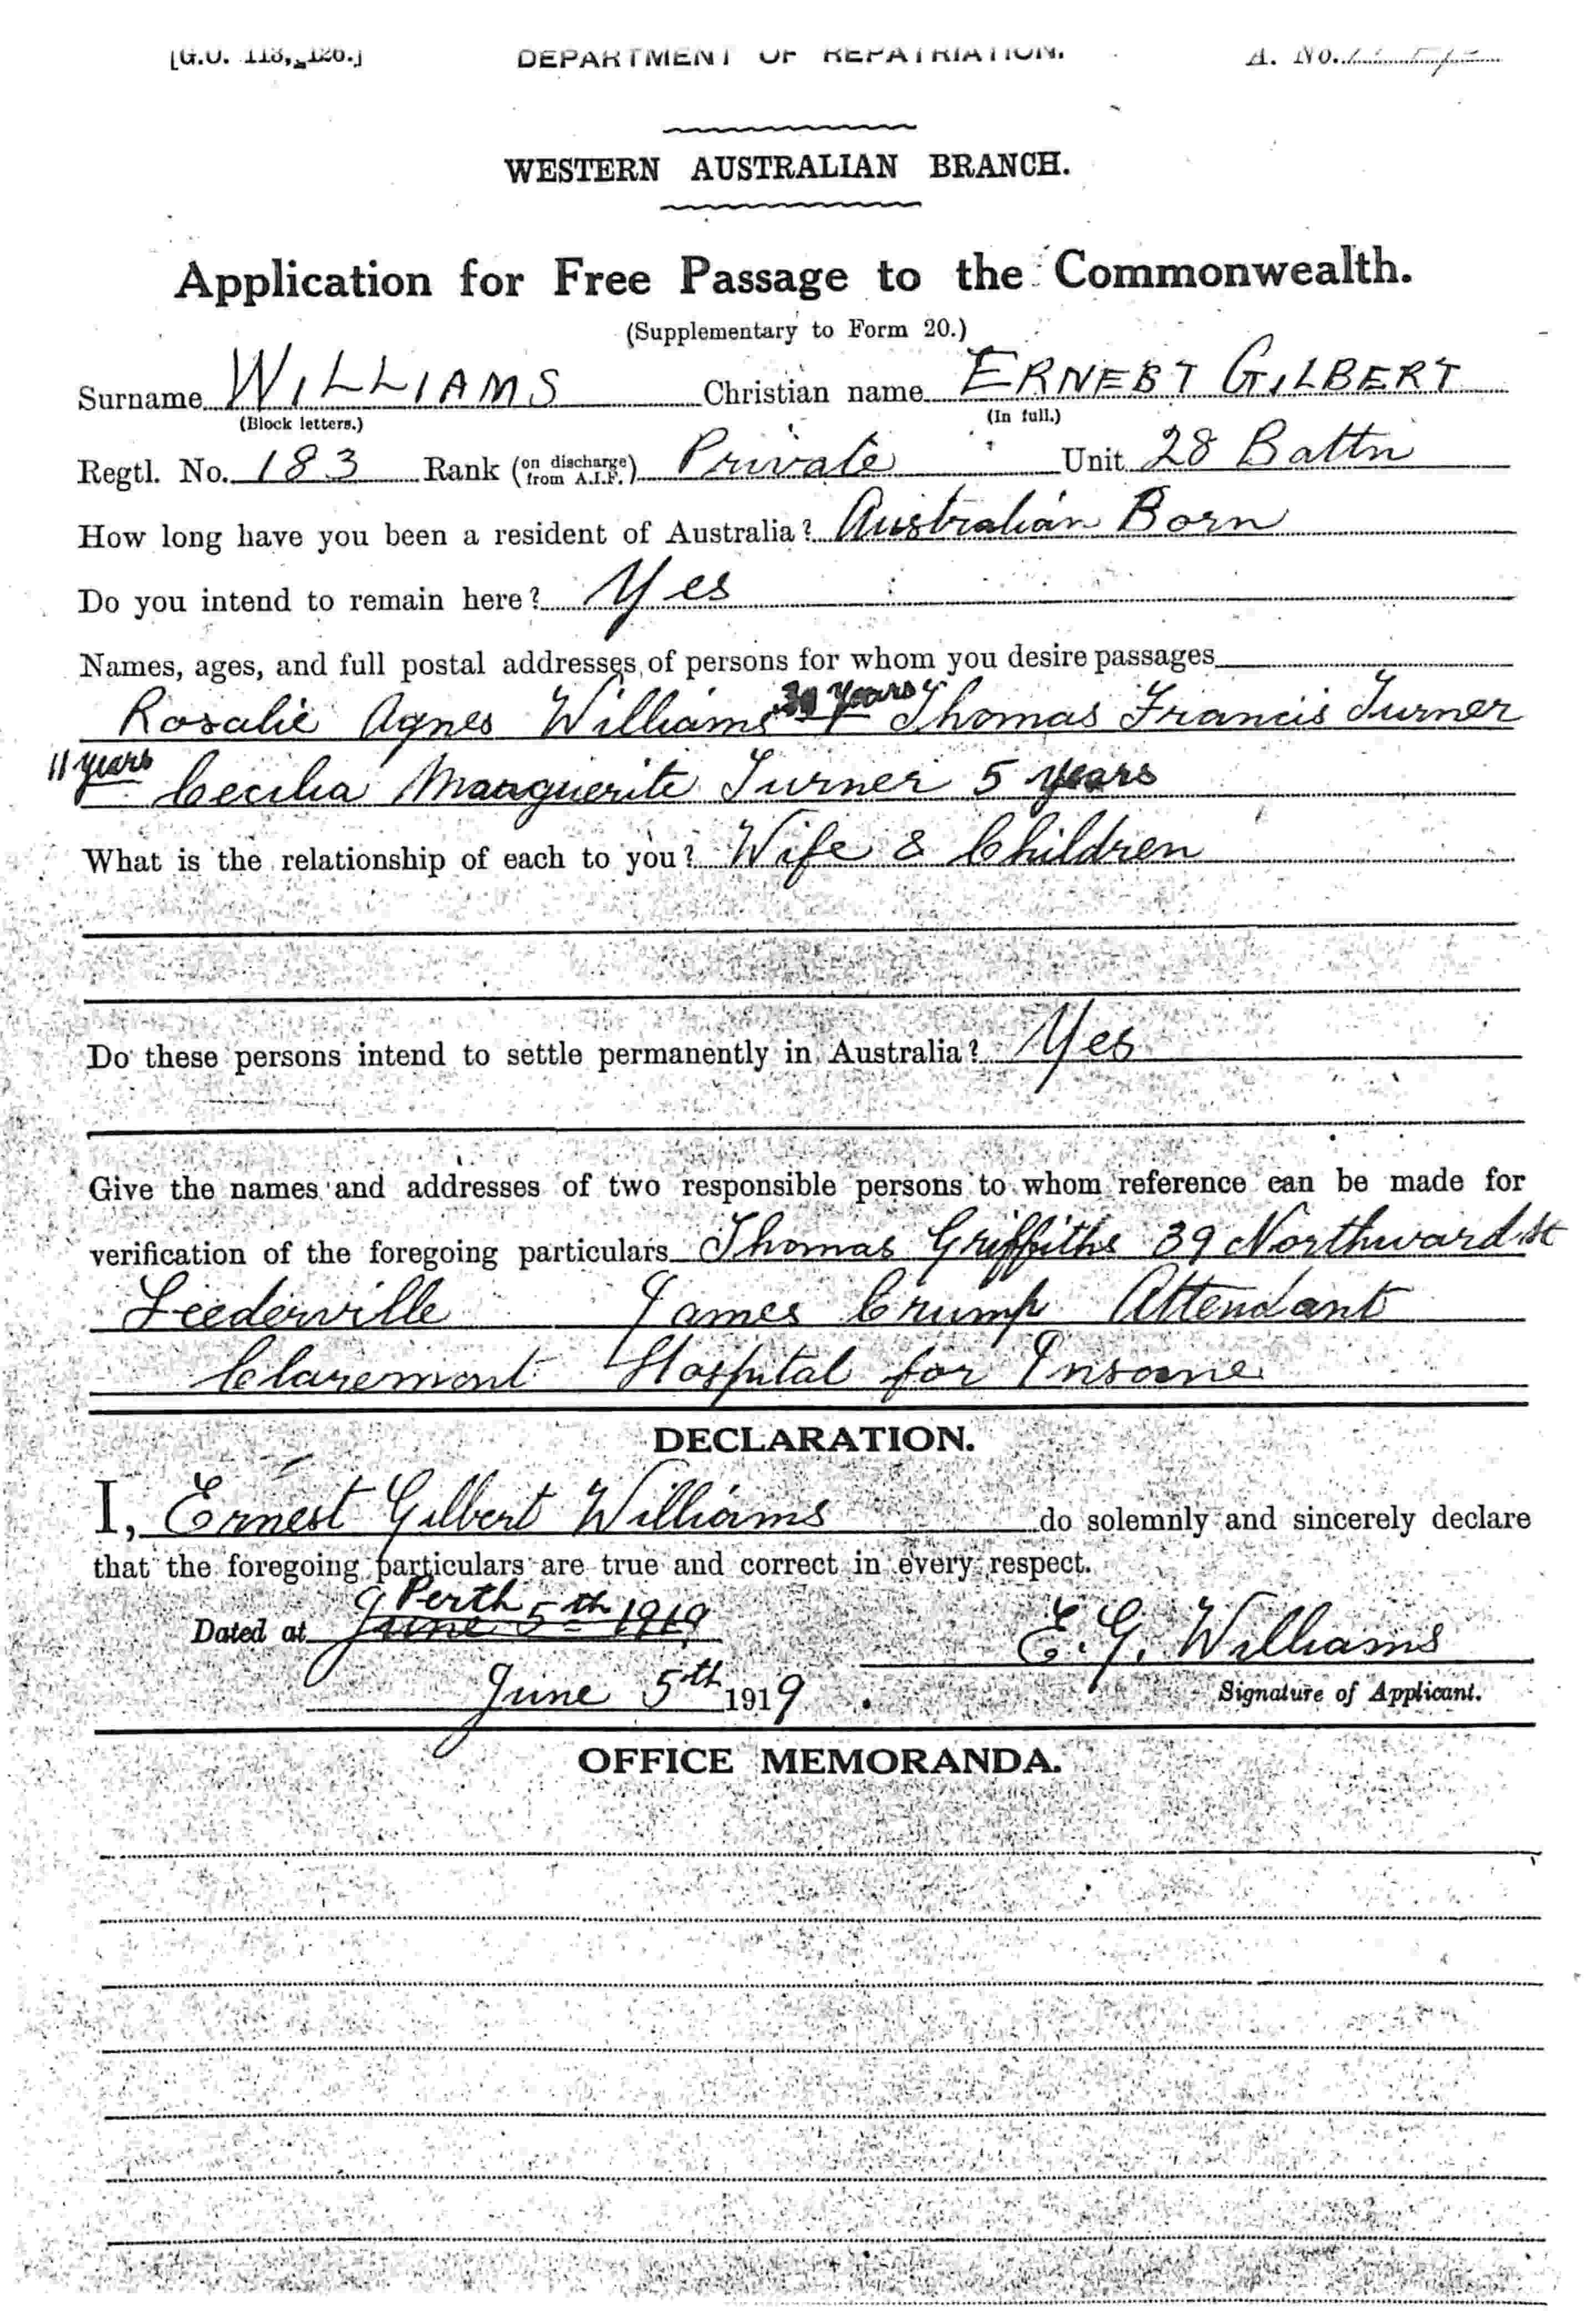 [G.O. 113, 126.] DEPARTMENT OF REPATRIATION. A. No.
WESTERN AUSTRALIAN BRANCH.
Application for Free Passage to the Commonwealth.
(Supplementary to Form 20.)
Surname WILLIAMS Christian name ERNEST GILBERT
(Block letters.) (In full.)
Regtl. No. 183 Rank (on discharge from A.I.F.) Private Unit 28 Battn
How long have you been a resident of Australia? Australian Born
Do you intend to remain here? Yes
Names, ages, and full postal addresses of persons for whom you desire passages
Rosalie Agnes Williams years + Thomas Francis Turner
11 years Cecilia Marguerite Turner 5 years
What is the relationship of each to you? Wife & Children
Do these persons intend to settle permanently in Australia? Yes
Give the names and addresses of two responsible persons to whom reference can be made for
verification of the foregoing particulars Thomas Griffiths 39 Northward St
Leederville James Crump Attendant
Claremont Hospital for Insane
DECLARATION.
I, Ernest Gilbert Williams do solemnly and sincerely declare
that the foregoing particulars are true and correct in every respect.
Perth
Dated at June 5th 1919 E. G. Williams
June 5th 1919 Signature of Applicant.
OFFICE MEMORANDA.